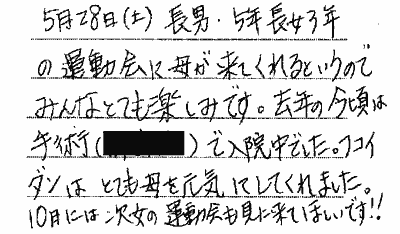 5月28日(土)長男・5年長女3年
の運動会に母が来てくれるというので
みんなとても楽しみです。去年の今頃は
手術( )で入院中でした。フコイ
ダンはとても母を元気にしてくれました。
10月には次女の運動会も見に来てほしいです!!